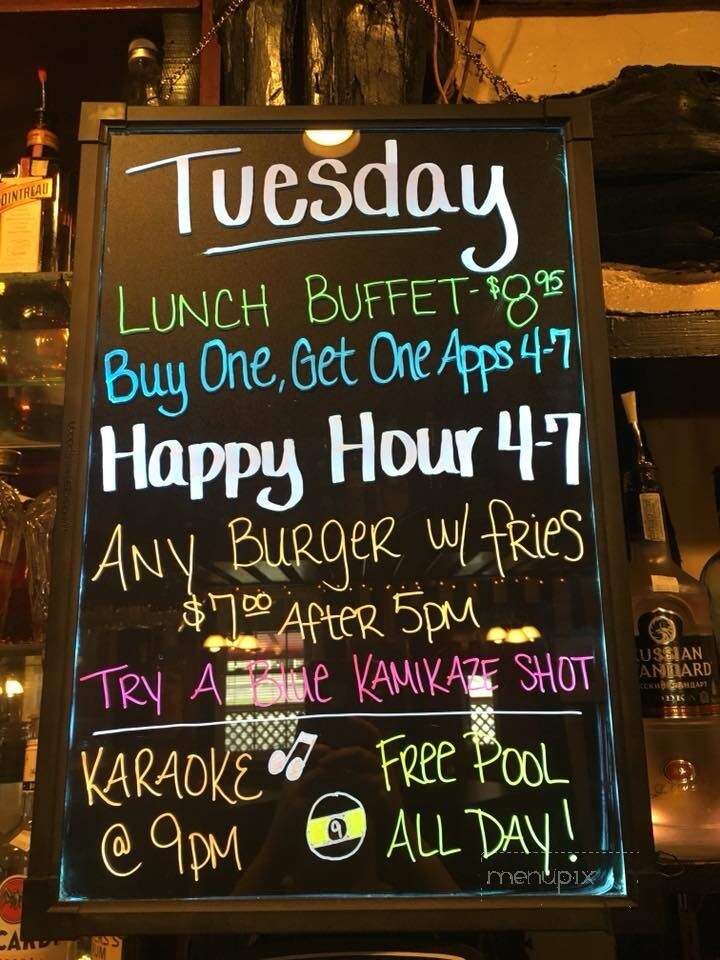 Tuesday
LUNCH BUFFET-$8.95
Buy One, Get One Apps 4-7
Happy Hour 4-7
ANY BURGER w/ fRies
$7.00 AfteR 5pm
TRY A Blue KAMIKAZE SHOT
KARAOKE
@ 9PM
FRee POOL
ALL DAY!
9
menupix
OINTREAU
USSIAN
ANDARD
CAR